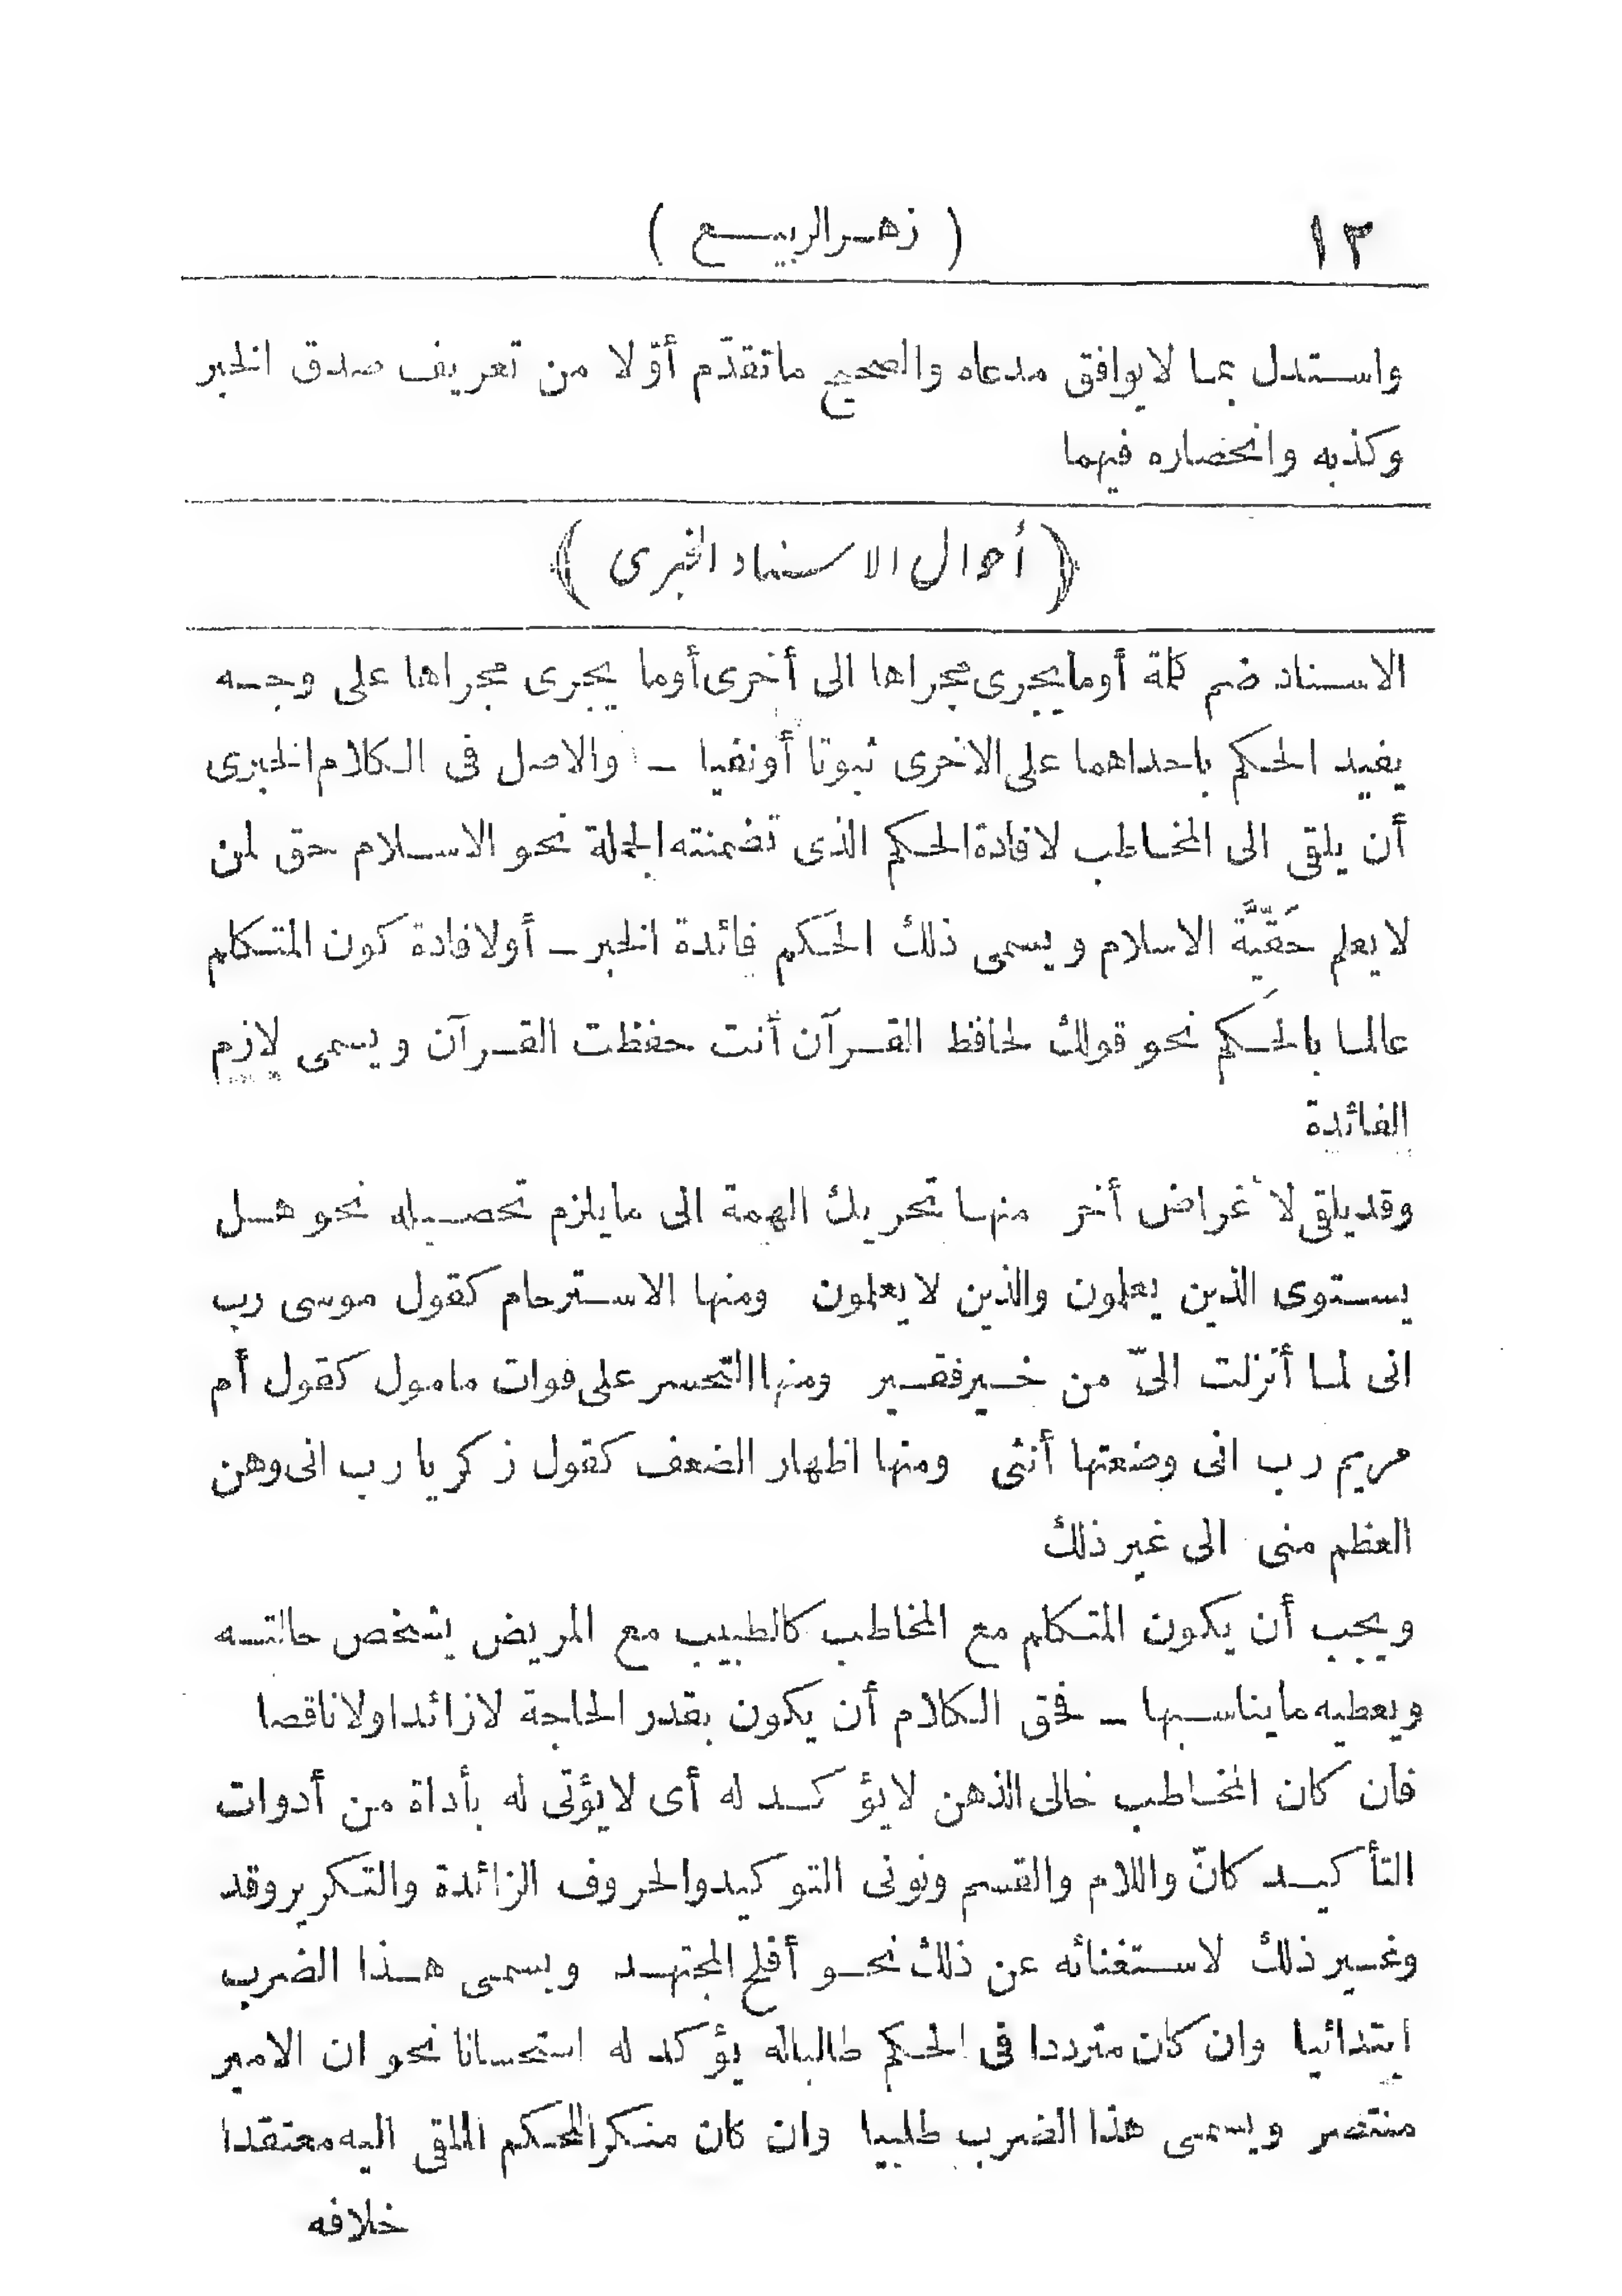 ١٣ ( زهر الربيع )
واستدل بما لا يوافق مدعاه والصحيح ما تقدّم أوّلا من تعريف صدق الخبر
وكذبه وانحصاره فيهما
( أحوال الاسناد الخبرى )
الاسناد ضم كلمة أوما يجرى مجراها الى أخرى أوما يجرى مجراها على وجه
يفيد الحكم باحداهما على الاخرى ثبوتا أو نفيا ـ والاصل فى الكلام الخبرى
أن يلقى الى المخاطب لافادة الحكم الذى تضمنته الجملة نحو الاسلام حق لمن
لا يعلم حَقّيَّة الاسلام ويسمى ذلك الحكم فائدة الخبر ـ أو لافادة كون المتكلم
عالما بالحكم نحو قولك لحافظ القرآن أنت حفظت القرآن ويسمى لازم
الفائدة
وقد يلقى لأغراض أخر منها تحريك الهمة الى ما يلزم تحصيله نحو هل
يستوى الذين يعلمون والذين لا يعلمون ومنها الاسترحام كقول موسى رب
انى لما أنزلت الىّ من خير فقير ومنها التحسر على فوات مامول كقول أم
مريم رب انى وضعتها أنثى ومنها اظهار الضعف كقول زكريا رب انى وهن
العظم منى الى غير ذلك
ويجب أن يكون المتكلم مع المخاطب كالطبيب مع المريض يشخص حالته
ويعطيه ما يناسبها ـ فحق الكلام أن يكون بقدر الحاجة لا زائدا ولا ناقصا
فان كان المخاطب خالى الذهن لا يؤكد له أى لا يؤتى له بأداة من أدوات
التأكيد كانّ واللام والقسم ونونى التوكيد والحروف الزائدة والتكرير وقد
وغير ذلك لاستغنائه عن ذلك نحو أفلح المجتهد ويسمى هذا الضرب
ابتدائيا وان كان مترددا فى الحكم طالبا له يؤكد له استحسانا نحو ان الامير
منتصر ويسمى هذا الضرب طلبيا وان كان منكرا للحكم الملقى اليه معتقدا
خلافه